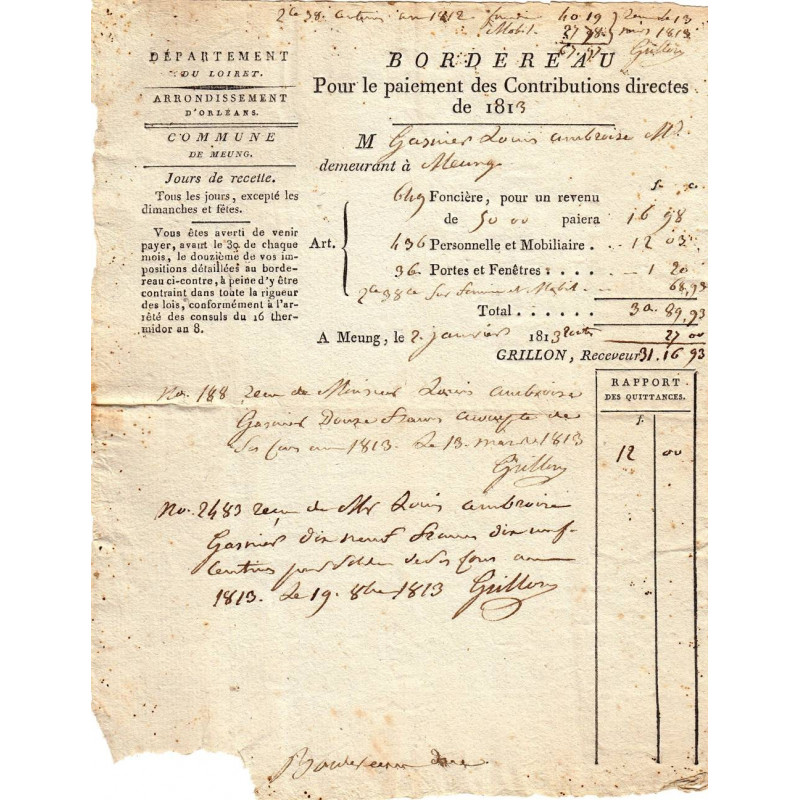 an 1812 40 19 13
Mobil. 27 78 1813
67.97 Grillon
DÉPARTEMENT
DU LOIRET.
ARRONDISSEMENT
D'ORLÉANS.
COMMUNE
DE MEUNG.
Jours de recette.
Tous les jours, excepté les
dimanches et fêtes.
Vous êtes averti de venir
payer, avant le 30 de chaque
mois, le douzième de vos im-
positions détaillées au borde-
reau ci-contre, à peine d'y être
contraint dans toute la rigueur
des lois, conformément à l'ar-
rêté des consuls du 16 ther-
midor an 8.
BORDEREAU
Pour le paiement des Contributions directes
de 1813
M Gasnier Louis ambroise Md
demeurant à Meung
f. c.
649 Foncière, pour un revenu
de 50 00 paiera 16 98
Art. 436 Personnelle et Mobiliaire . 12 03
36. Portes et Fenêtres . . . . 1 20
68,93
Total . . . . . . 30. 89,93
A Meung, le 2. janvier 1813 27 00
GRILLON, Receveur 31.16 93
RAPPORT
DES QUITTANCES.
No. 188 recu de Monsieur Louis ambroise
Gasnier Douze francs acompte de
Ses 1813. Le 13. mars 1813 12 00
Grillon
No. 2483 recu de Mr Louis ambroise
Gasnier dix neuf francs dix neuf
Centimes pour Solde de Ses
1813. Le 19. 8bre 1813 Grillon